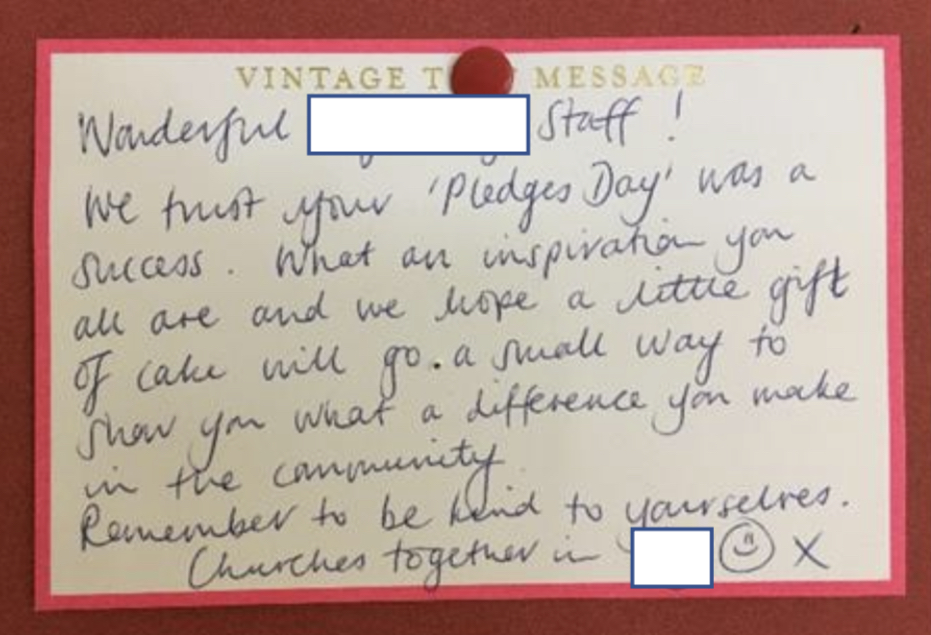 VINTAGE T MESSAGE
Wonderful Staff !
We trust your 'Pledges Day' was a
success. What an inspiration you
all are and we hope a little gift
of cake will go . a small way to
show you what a difference you make
in the community
Remember to be kind to yourselves.
Churches together in ☺ X